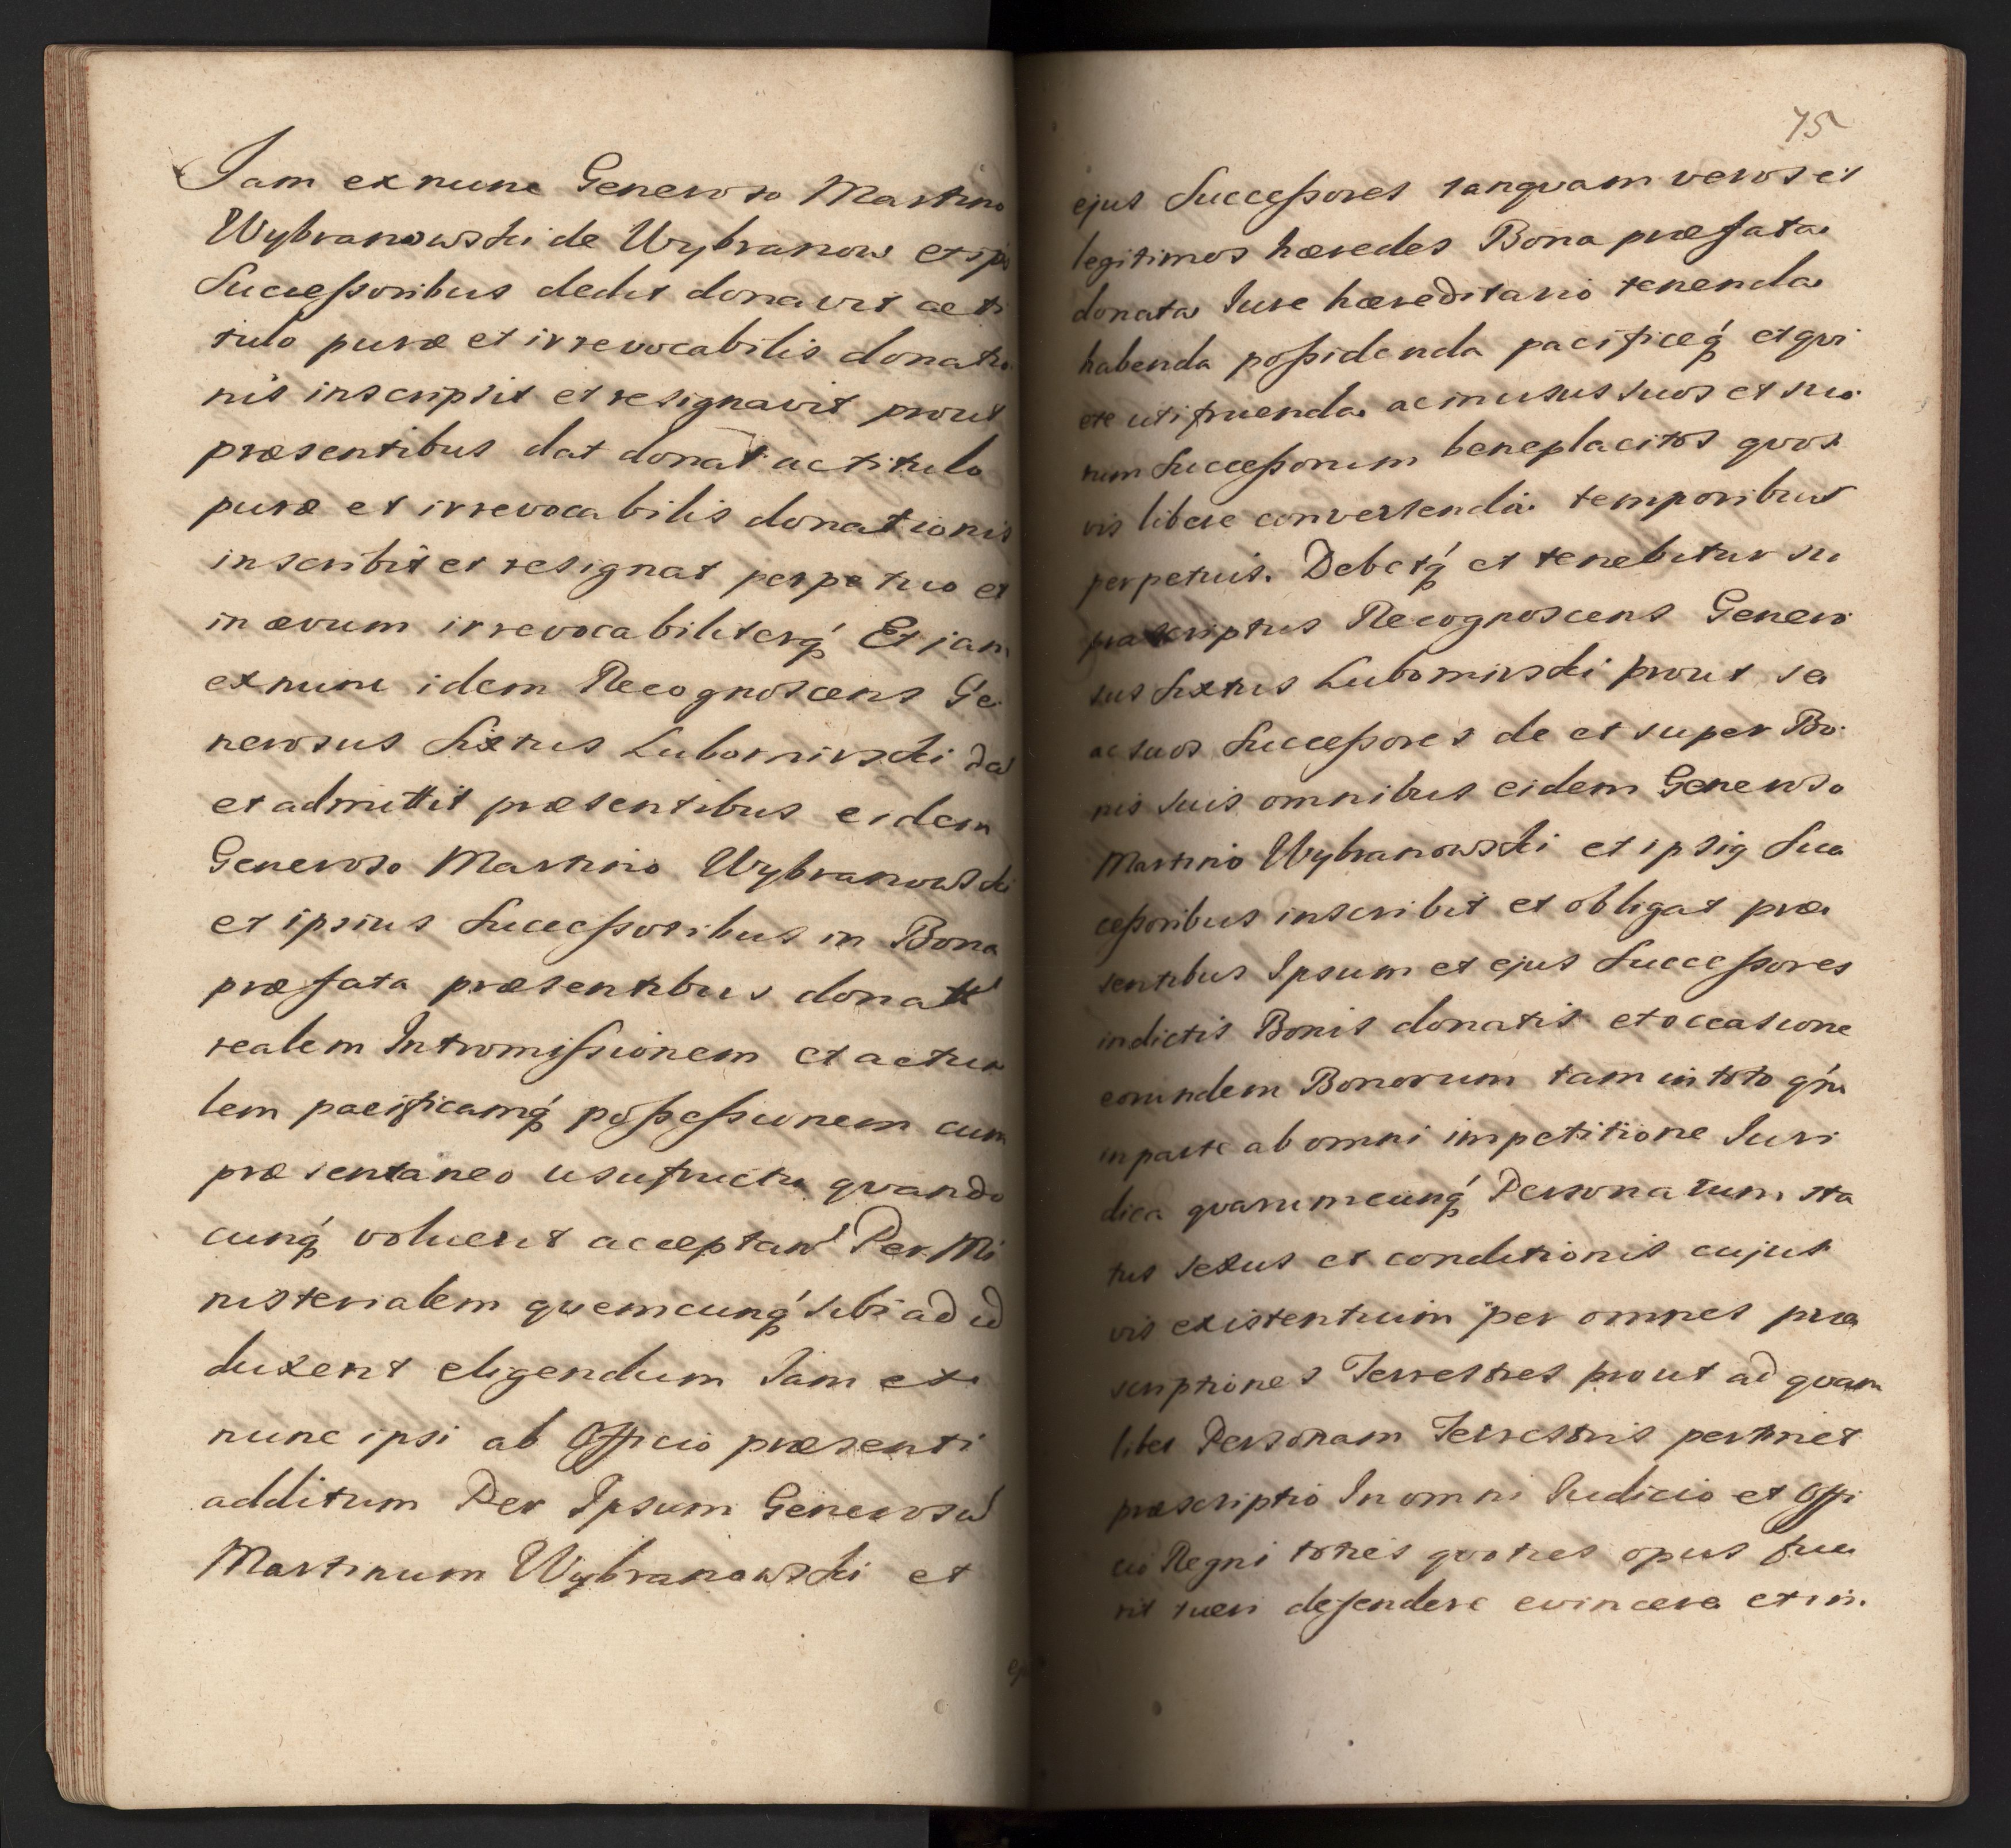 Jam ex nunc Generoso Martino
Wybranowski de Wybranow et ipsi
Successoribus dedit donavit ac ti
tulo puræ et irrevocabilis donatio
nis inscripsit et resignavit prout
præsentibus dat donat ac titulo
puræ et irrevocabilis donationis
inscribit et resignat perpetuo et
in ævum irrevocabiliterq́ Et jam
ex nunc idem Recognoscens Ge
nerosus Sixtus Lubomirski dat
et admittit præsentibus eidem
Generoso Martino Wybranowski
et ipsius Successoribus in Bona
præfata præsentibus donata
realem Intromissionem et actua
lem pacificamq́ possessionem cum
præsentaneo usufructu quando
cunq́ voluerit acceptan Per Mi
nisterialem quemcunq́ sibi ad id
duxerit eligendum Jam ex
nunc ipsi ab Officio præsenti
additum Per Ipsum Generosū
Martinum Wybranowski et
75
ejus Successores tanqvam veros et
legitimos hæredes Bona præfata
donata Iure hæreditario tenenda
habenda possidenda pacificeq́ et qvi
ete utifruenda ac in usus suos et suo
rum Successorum beneplacitos qvos
vis libere convertenda temporibus
perpetuis. Debetq́ et tenebitur su
prascriptus Recognoscens Genero
sus Sixtus Lubomirski prout se
ac suos Successores de et super Bo
nis suis omnibus eidem Generoso
Martino Wybranowski et ipsiq Suc
cessoribus inscribit et obligat præ
sentibus Ipsum et ejus Successores
in dictis Bonis donatis et occasione
eorundem Bonorum tam in toto qm̃
in parte ab omni impetitione Iuri
dica qvarumcunq́ Personarum sta
tus sexus et conditionis cujus
vis existentium per omnes præ
scriptiones Terrestres prout ad qvam
libet Personam Terrestris pertinet
præscriptio In omni Iudicio et Offi
cio Regni toties qvoties opus fue
rit tueri defendere evincere et in